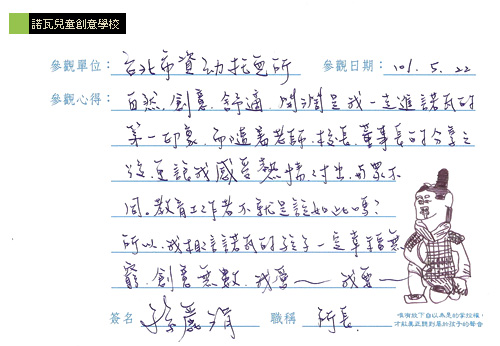 諾瓦兒童創意學校
參觀單位: 台北市資幼托兒所 參觀日期: 101. 5. 22
參觀心得: 自然、創意、舒適、開闊是我一走進諾瓦的
第一印象,而隨著老師、校長、董事長的分享之
後,更讓我感受熱情付出,與眾不
同。教育工作者不就是該如此嗎?
所以,我相信諾瓦的孩子一定幸福無
窮,創意無數,我愛—— 我愛——
簽名 職稱 所長
唯有放下自以為是的掌控權,
才能真正聽到基於孩子的聲音